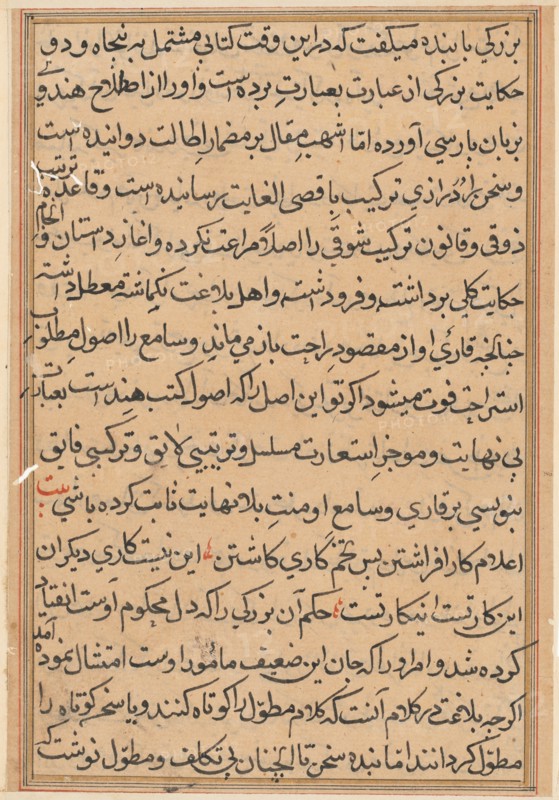 بزرکي با بنده میکفت که دراین وقت کتابي مشتمل بر پنجاه و دو
حکایت بزرکی از عبارت بعبارت برده است و اورا از اصطلاح هندوي
بزبان پارسي آورده امّا اشهب مقال بر مضمار اطالت دوانیده است
و سخن را بدرازي ترکیب باقصی الغایت رسانیده است و قاعدهٔ ترتیب
ذوقی و قانون ترکیب شوقی را اصلا مراعت نکرده و اغاز داستان و انجام
حکایت کلي برداشته و فرود داشته و اهل بلاغت یکماشته معطل داشته
چنانچه قارئ او از مقصود راحت باز مي ماند و سامع را اصول مطلوب
استراحت فوت میشود اکر تو این اصل را که اصول کتب هند است بعبارتي
بي نهایت و موجز استعارت مسلسل و ترتیبي لایق و ترکیبي فایق
بنویسي بر قاري و سامع او منت بلا نهایت ثابت کرده باشي بیت
اعلام کار افراشتن بس تخم کاري کاشتن این نیست کاري دیکران
این کار تست این کار تست حکم آن بزرکي را که دل محکوم اوست انقیاد
کرده شد و امر او را که جان این ضعیف مأمور اوست امتثال نموده آمد
اکرچه بلاغت در کلام آنست که کلام مطوّل را کوتاه کنند و یا سخن کوتاه را
مطوّل کردانند امّا بنده سخن تا آنچنان بي تکلف و مطوّل نوشت که